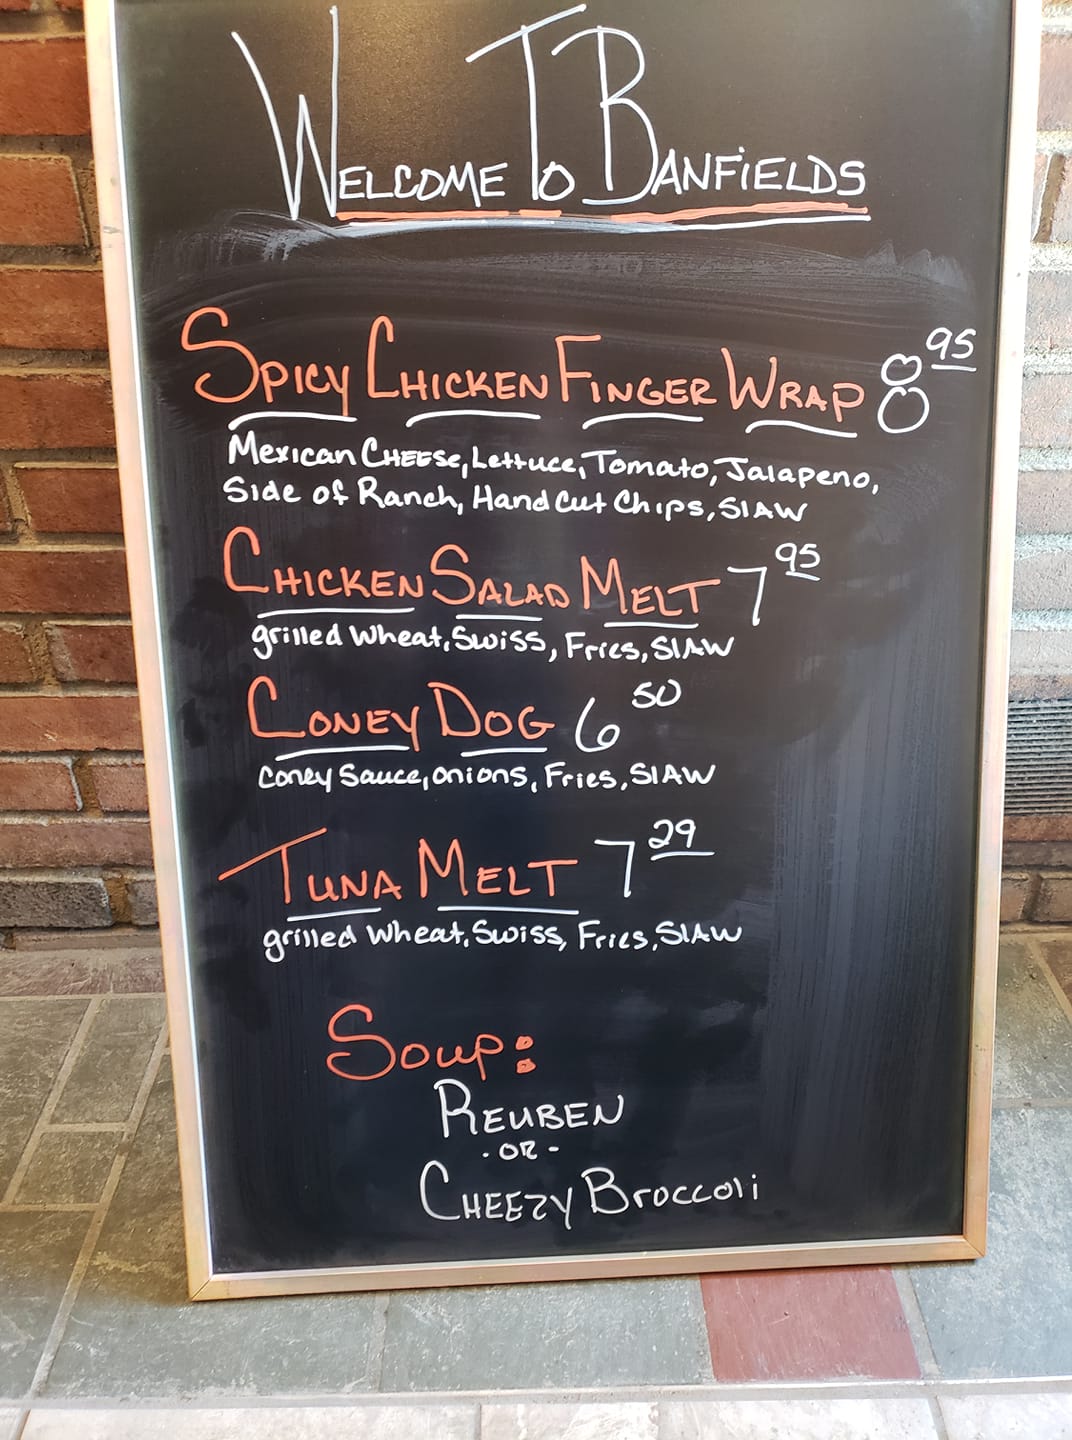 WELCOME TO BANFiELDS
SPICY CHICKEN FINGER WRAP 8 95
Mexican CHEESe, Lettuce, Tomato, Jalapeno,
Side of Ranch, Hand Cut Chips, SlAW
CHICKEN SALAD MELT 7 95
grilled Wheat, Swiss, Fries, SlAW
CONEY DOG 6 50
Coney Sauce, onions, Fries, SlAW
TUNA MELT 7 29
grilled Wheat, Swiss, Fries, SlAW
Soup:
REUBEN
. OR -
CHEEZY Broccoli